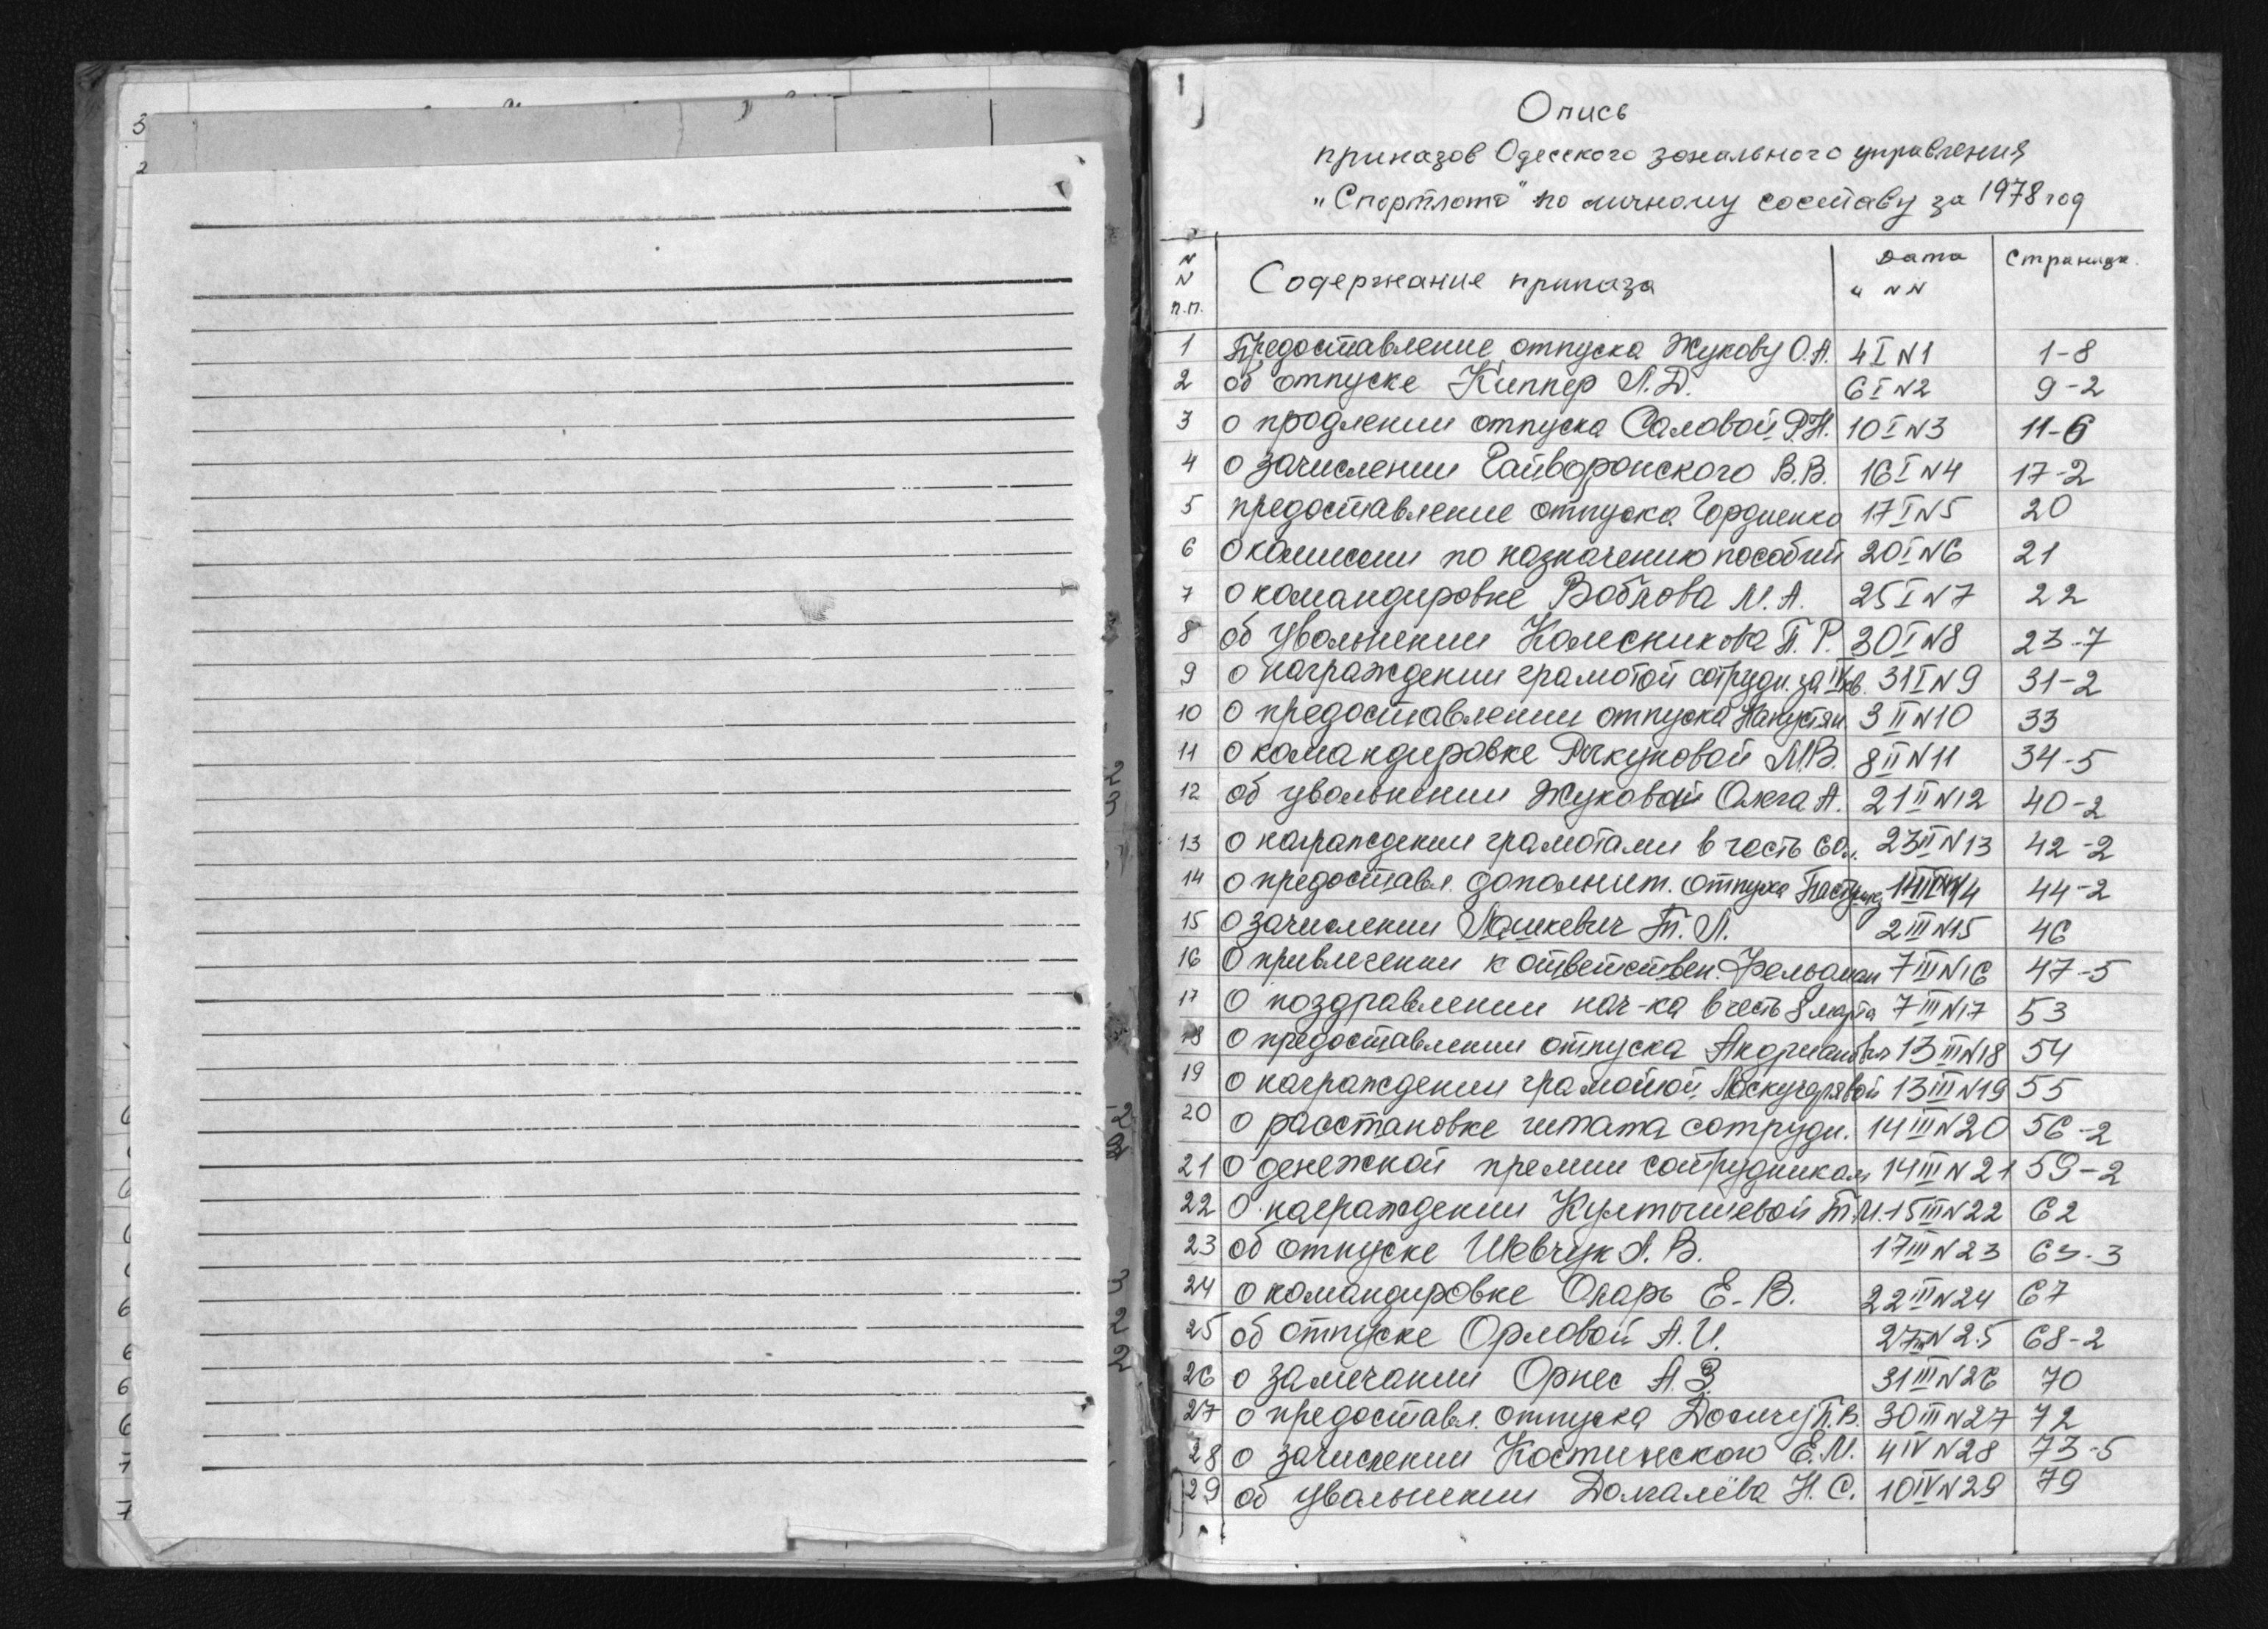 Опись
приказов Одесского зонального управления
„Спортлото" по личному составу за 1978 год
N N п.п. Содержание приказа Дата и NN Страница.
1 Предоставление отпуска Жукову О.А. 4 I N1 1-8
2 об отпуске Киппер Л.Д. 6 I N2 9-2
3 о продлении отпуска Саловой Р.Н. 10 I N3 11-6
4 о зачислении Гайворонского В.В. 16 I N4 17-2
5 предоставление отпуска Гордиенко 17 I N5 20
6 о комиссии по назначению пособий 20 I N6 21
7 о командировке Воблова М.А. 25 I N7 22
8 об увольнении Колесникова П.Р. 30 I N8 23-7
9 о награждении грамотой сотрудн. за IV кв. 31 I N9 31-2
10 о предоставлении отпуска 3 II N10 33
11 о командировке Рачкуновой М.В. 8 II N11 34-5
12 об увольнении Жуковой Олега А. 21 II N12 40-2
13 о награждении грамотами в честь 60л. 23 II N13 42-2
14 о предоставл. дополнит. отпуска 44-2
15 о зачислении Лашкевич Т.Л. 2 III N15 46
16 О привлечении к ответствен. Фельдман 7 III N16 47-5
17 О поздравлении кол-ка в честь 8 марта 7 III N17 53
18 О предоставлении отпуска 13 III N18 54
19 о награждении грамотой 13 III N19 55
20 о расстановке штата сотрудн. 14 III N20 56-2
21 о денежной премии сотрудникам 14 III N21 59-2
22 О награждении Култышевой Т.И. 15 III N22 62
23 об отпуске Шевчук А.В. 17 III N23 63-3
24 о командировке Опарь Е.В. 22 III N24 67
25 об отпуске Орловой А.И. 27 III N25 68-2
26 о замечании Орнес А.З. 31 III N26 70
27 о предоставл. отпуска П.В. 30 III N27 72
28 о зачислении Костинского Е.М. 4 IV N28 73-5
29 об увольнении Долгалёва Н.С. 10 IV N29 79